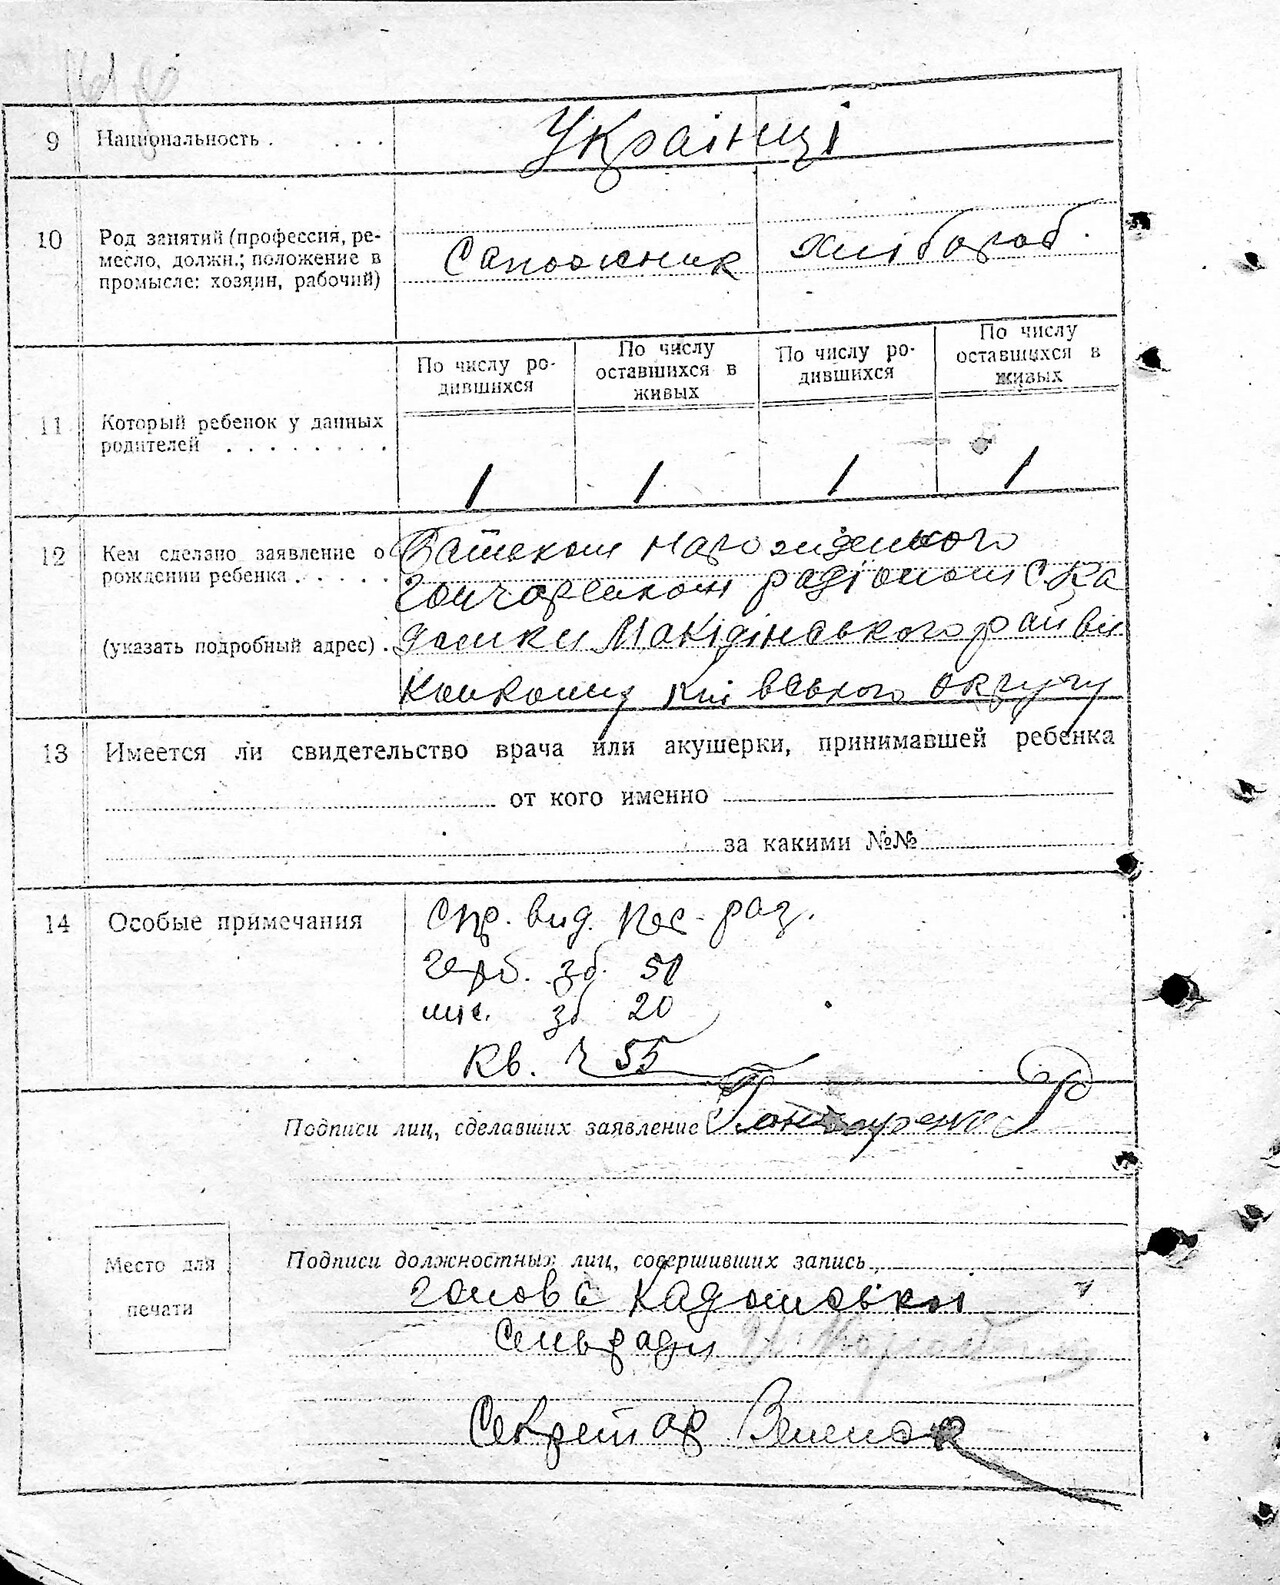 9 Национальность . . . . Українці
10 Род занятий (профессия, ре-
месло, должн.; положение в
промысле: хозяин, рабочий)
Сапожник хлібороб.
По числу ро-
дившихся
По числу
оставшихся в
живых
По числу ро-
дившихся
По числу
оставшихся в
живых
11 Который ребенок у данных
родителей . . . . . . . .
1 1 1 1
12 Кем сделано заявление о
рождении ребенка . . . . .
(указать подробный адрес) .
Батьком народженого
Гончаренком
району
Київського округу
13 Имеется ли свидетельство врача или акушерки, принимавшей ребенка
от кого именно
за какими №№
14 Особые примечания
Спр. вид.
герб. зб. 50
зб 20
кв. 55
Подписи лиц, сделавших заявление Гончаренко
Место для
печати
Подписи должностных лиц, совершивших запись
голова
Сельради
Секретар